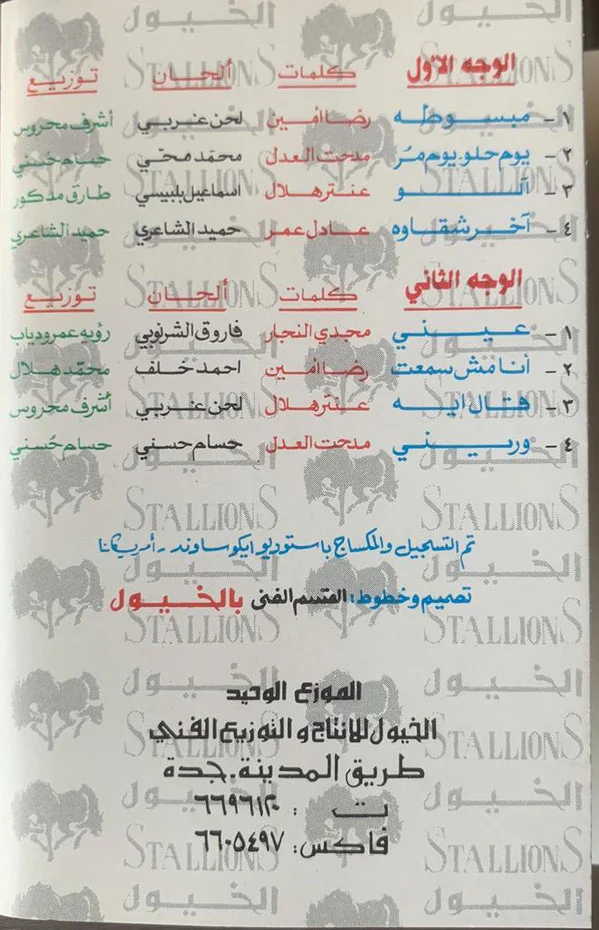 الوجه الأول كلمات ألحان توزيع
١ - مبسوطه رضا امين لحن غربي أشرف محروس
٢ - يوم حلو يوم مُر مدحت العدل محمد محي حسام حسني
٣ - ألو عنتر هلال اسماعيل بلبيسي طارق مدكور
٤ - آخر شقاوه عادل عمر حميد الشاعري حميد الشاعري
الوجه الثاني كلمات ألحان توزيع
١ - عيني مجدي النجار فاروق الشرنوبي رؤيه عمرو دياب
٢ - أنا مش سمعت رضا امين احمد خلف محمد هلال
٣ - قال ايه عنتر هلال لحن غربي أشرف محروس
٤ - وريني مدحت العدل حسام حسني حسام حُسني
تم التسجيل والمكساج باستوديو ايكو ساوند - أمريكانا
تصميم وخطوط: القسم الفنى بالخيول
الموزع الوحيد
الخيول للانتاج و التوزيع الفني
طريق المدينة. جدة
ت : ٦٦٩٦١٢٠
فاكس: ٦٦٠٥٤٩٧
الخيول
STALLIONS